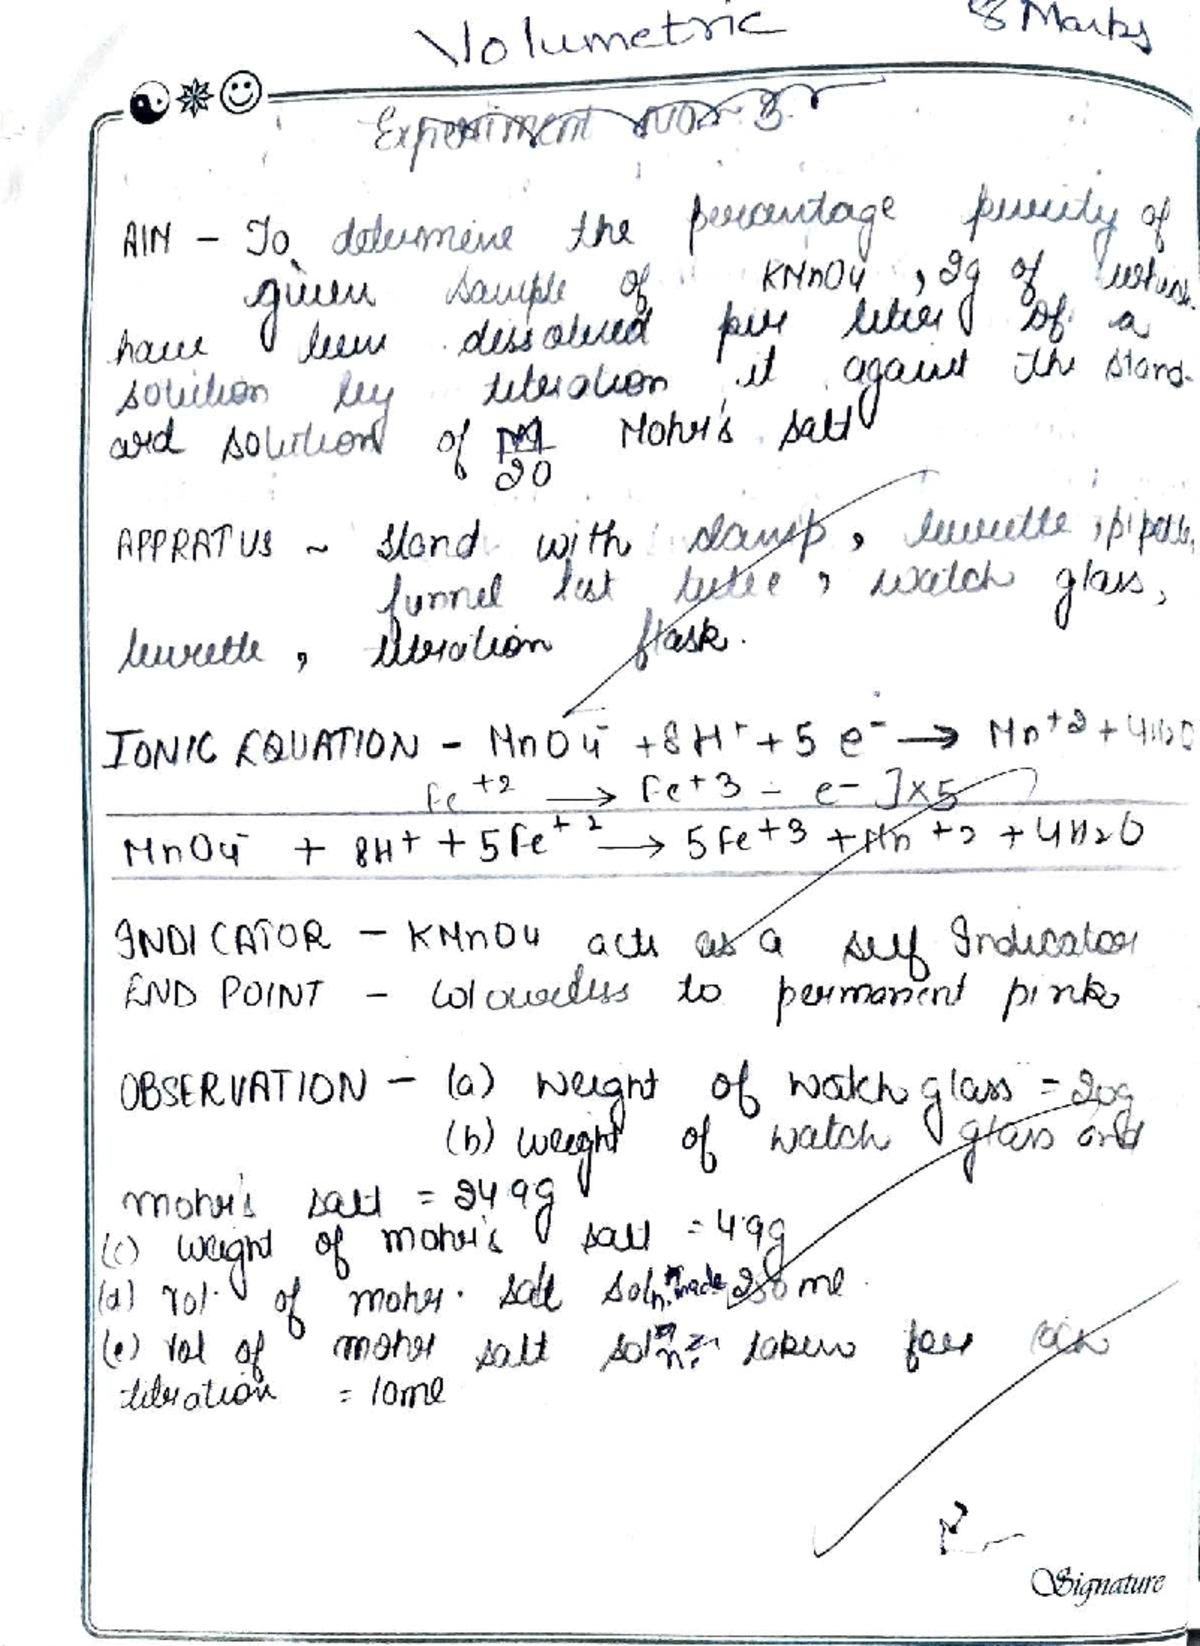 Volumetric 8 Marks
Experiment No - 3
AIM - To determine the percentage purity of
given sample of KMnO4, 2g of which
have been dissolved per liter of a
solution by titeration it against the stand-
ard solution of M/20 Mohr's salt
APPRATUS ~ stand with clamp, burette, pipette,
funnel test tube, watch glass,
burette, titeration flask.
IONIC EQUATION - MnO4⁻ + 8H⁺ + 5e⁻ → Mn⁺² + 4H2O
Fe⁺² → Fe⁺³ - e- ]×5
MnO4⁻ + 8H⁺ + 5Fe⁺² → 5Fe⁺³ + Mn⁺² + 4H2O
INDICATOR - KMnO4 acts as a self Indicator
END POINT - colourless to permanent pink
OBSERVATION - (a) weight of watch glass = 20g
(b) weight of watch glass and
mohr's salt = 24.9g
(c) weight of mohr's salt = 4.9g
(d) vol. of mohr. salt soln. made 250 ml.
(e) vol of mohr salt soln. taken for each
titeration = 10ml
Signature